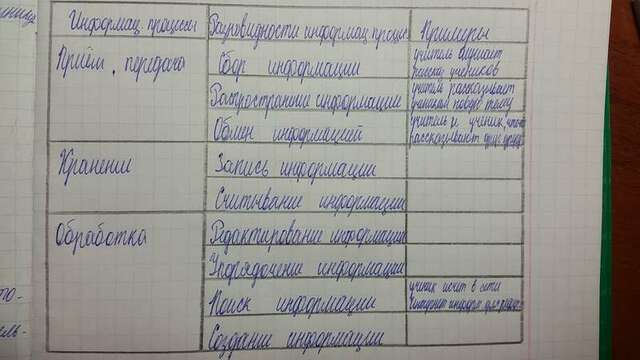 Информац. процессы Разновидности информац. процес. Примеры
Приём, передача Сбор информации учитель слушает
рассказ учеников
Распространение информации учитель рассказывает
ученикам новую тему
Обмен информацией учитель и ученик что-то
рассказывают друг другу
Хранение Запись информации
Считывание информации
Обработка Редактирование информации
Упорядочение информации
Поиск информации ученик ищет в сети
Интернет информ. для
Создание информации
то-
ель-